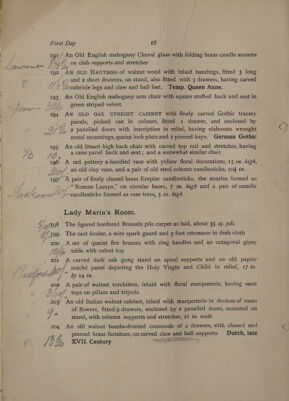 First Day 16
191 An Old English mahogany Cheval glass with folding brass candle sconces
on club supports and stretcher
192 AN OLD HAUTBOIS of walnut wood with inlaid bandings, fitted 3 long
and 2 short drawers, on stand, also fitted with 3 drawers, having carved
cabriole legs and claw and ball feet. Temp. Queen Anne.
193 An Old English mahogany arm chair with square stuffed back and seat in
green striped velvet
194 AN OLD OAK UPRIGHT CABINET with finely carved Gothic tracery
panels, picked out in colours, fitted 1 drawer, and enclosed by
2 panelled doors with inscription in relief, having elaborate wrought
metal mountings, quaint lock plate and 2 pierced keys. German Gothic
195 An old Stuart high back chair with carved top rail and stretcher, having
a cane panel back and seat; and a somewhat similar chair
196 A red pottery 2-handled vase with yellow floral decorations, 15 in. high,
an old clay vase, and a pair of old steel column candlesticks, 10½ in.
197 A pair of finely chased brass Empire candlesticks, the nozzles formed as
"Roman Lamps," on circular bases, 7 in. high and a pair of ormolu
candlesticks formed as rose trees, 5 in. high
Lady Maria's Room.
198 The figured bordered Brussels pile carpet as laid, about 35 sq. yds.
199 The cast fender, a wire spark guard and 3 foot ottomans in drab cloth
200 A set of quaint fire brasses with ring handles and an octagonal gipsy
table with velvet top
201 A carved dark oak gong stand on spiral supports and an old papier
mâché panel depicting the Holy Virgin and Child in relief, 17 in.
by 14 in.
202 A pair of walnut torchières, inlaid with floral marqueterie, having sunk
tops on pillars and tripods
203 An old Italian walnut cabinet, inlaid with marqueterie in devices of vases
of flowers, fitted 9 drawers, enclosed by 2 panelled doors, mounted on
stand, with column supports and stretcher, 21 in. wide
204 An old walnut bombe-fronted commode of 4 drawers, with chased and
pierced brass furniture, on carved claw and ball supports. Dutch, late
XVII. Century